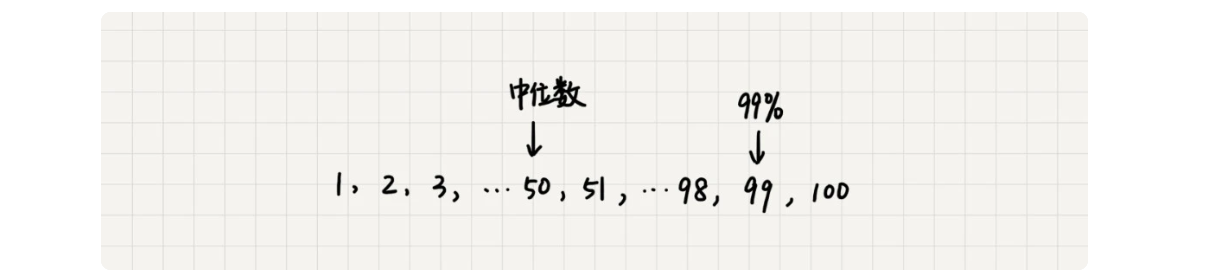 中位数 99%
1, 2, 3, ... 50, 51, ... 98, 99, 100